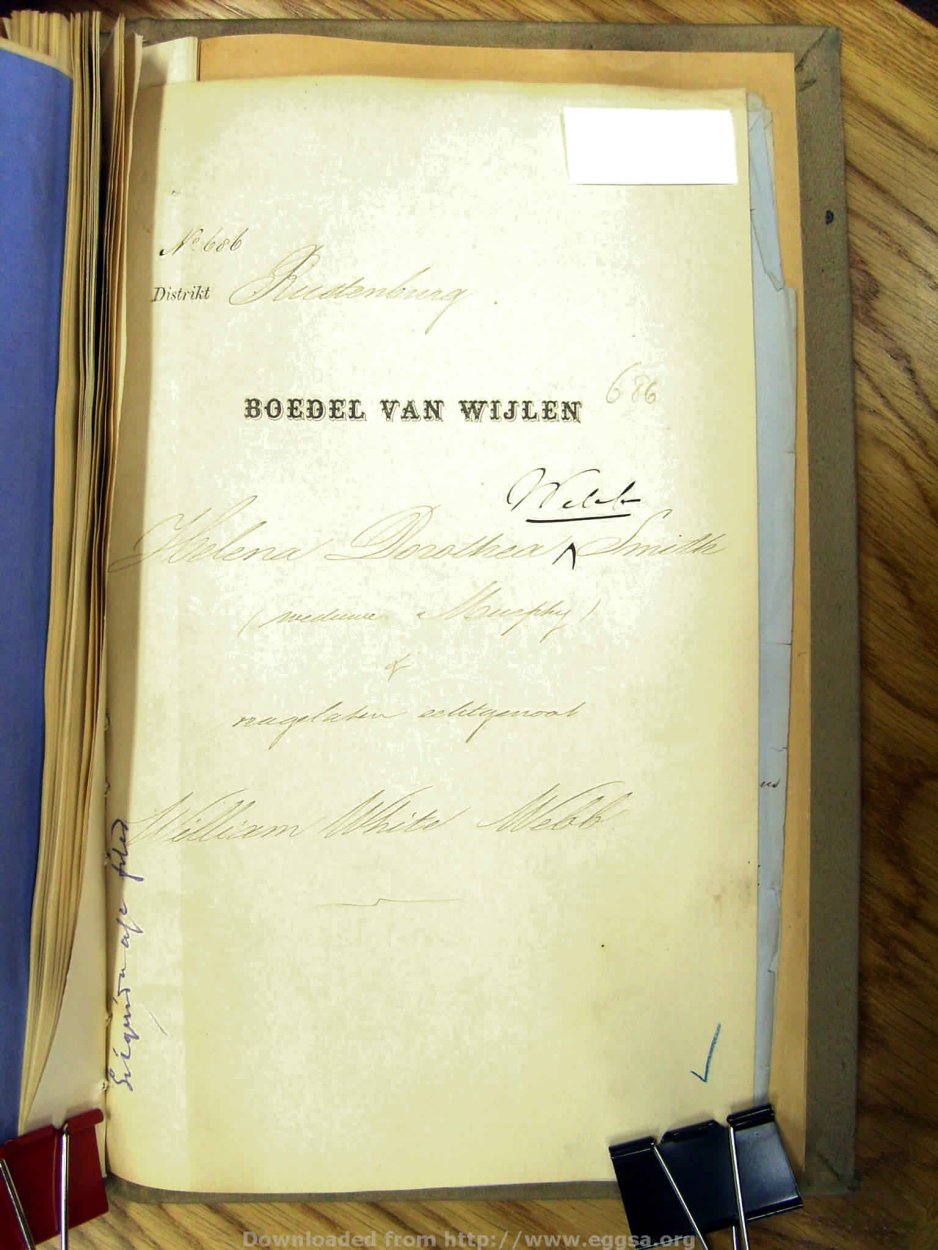 No 686
Distrikt Rustenburg
BOEDEL VAN WIJLEN 686
Webb
Helena Dorothea ^ Smith
(weduwe Murphy)
&
nagelaten echtgenoot
William White Webb
Liquidn a/c filed
Downloaded from http://www.eggsa.org